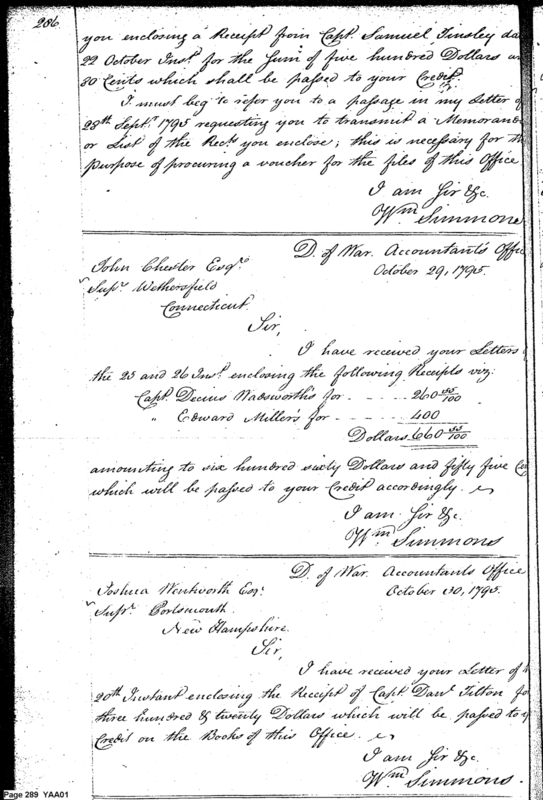 286
you enclosing a Receipt from Capt. Samuel Tinsley da
22 October Inst. for the Sum of five hundred Dollars an
30 Cents which shall be passed to your Credit.
I must beg to refer you to a passage in my Letter o
28th Sept. 1795 requesting you to transmit a Memorand
or List of the Rects you enclose; this is necessary for th
purpose of procuring a voucher for the files of this Office
I am Sir &c.
Wm Simmons
D. of War. Accountant's Offic
October 29, 1795.
John Chester Esqr.
Supr. Wethersfield
Connecticut.
Sir,
I have received your Letters
the 25 and 26 Inst. enclosing the following Receipts viz:
Capt. Decius Wadsworth's for - - - - - 260 55/100
" Edward Miller's for - - - - - 400
Dollars 660 55/100
amounting to six hundred sixty Dollars and fifty five Cen
which will be passed to your Credit accordingly.
I am Sir &c.
Wm Simmons
D. of War. Accountants Office
October 30, 1795.
Joshua Wentworth Esqr.
Supr. Portsmouth.
New Hampshire.
Sir,
I have received your Letter of
20th Instant enclosing the Receipt of Capt Danl. Tilton fo
three hundred & twenty Dollars which will be passed to y
Credit on the Books of this Office.
I am Sir &c.
Wm Simmons.
Page 289 YAA01